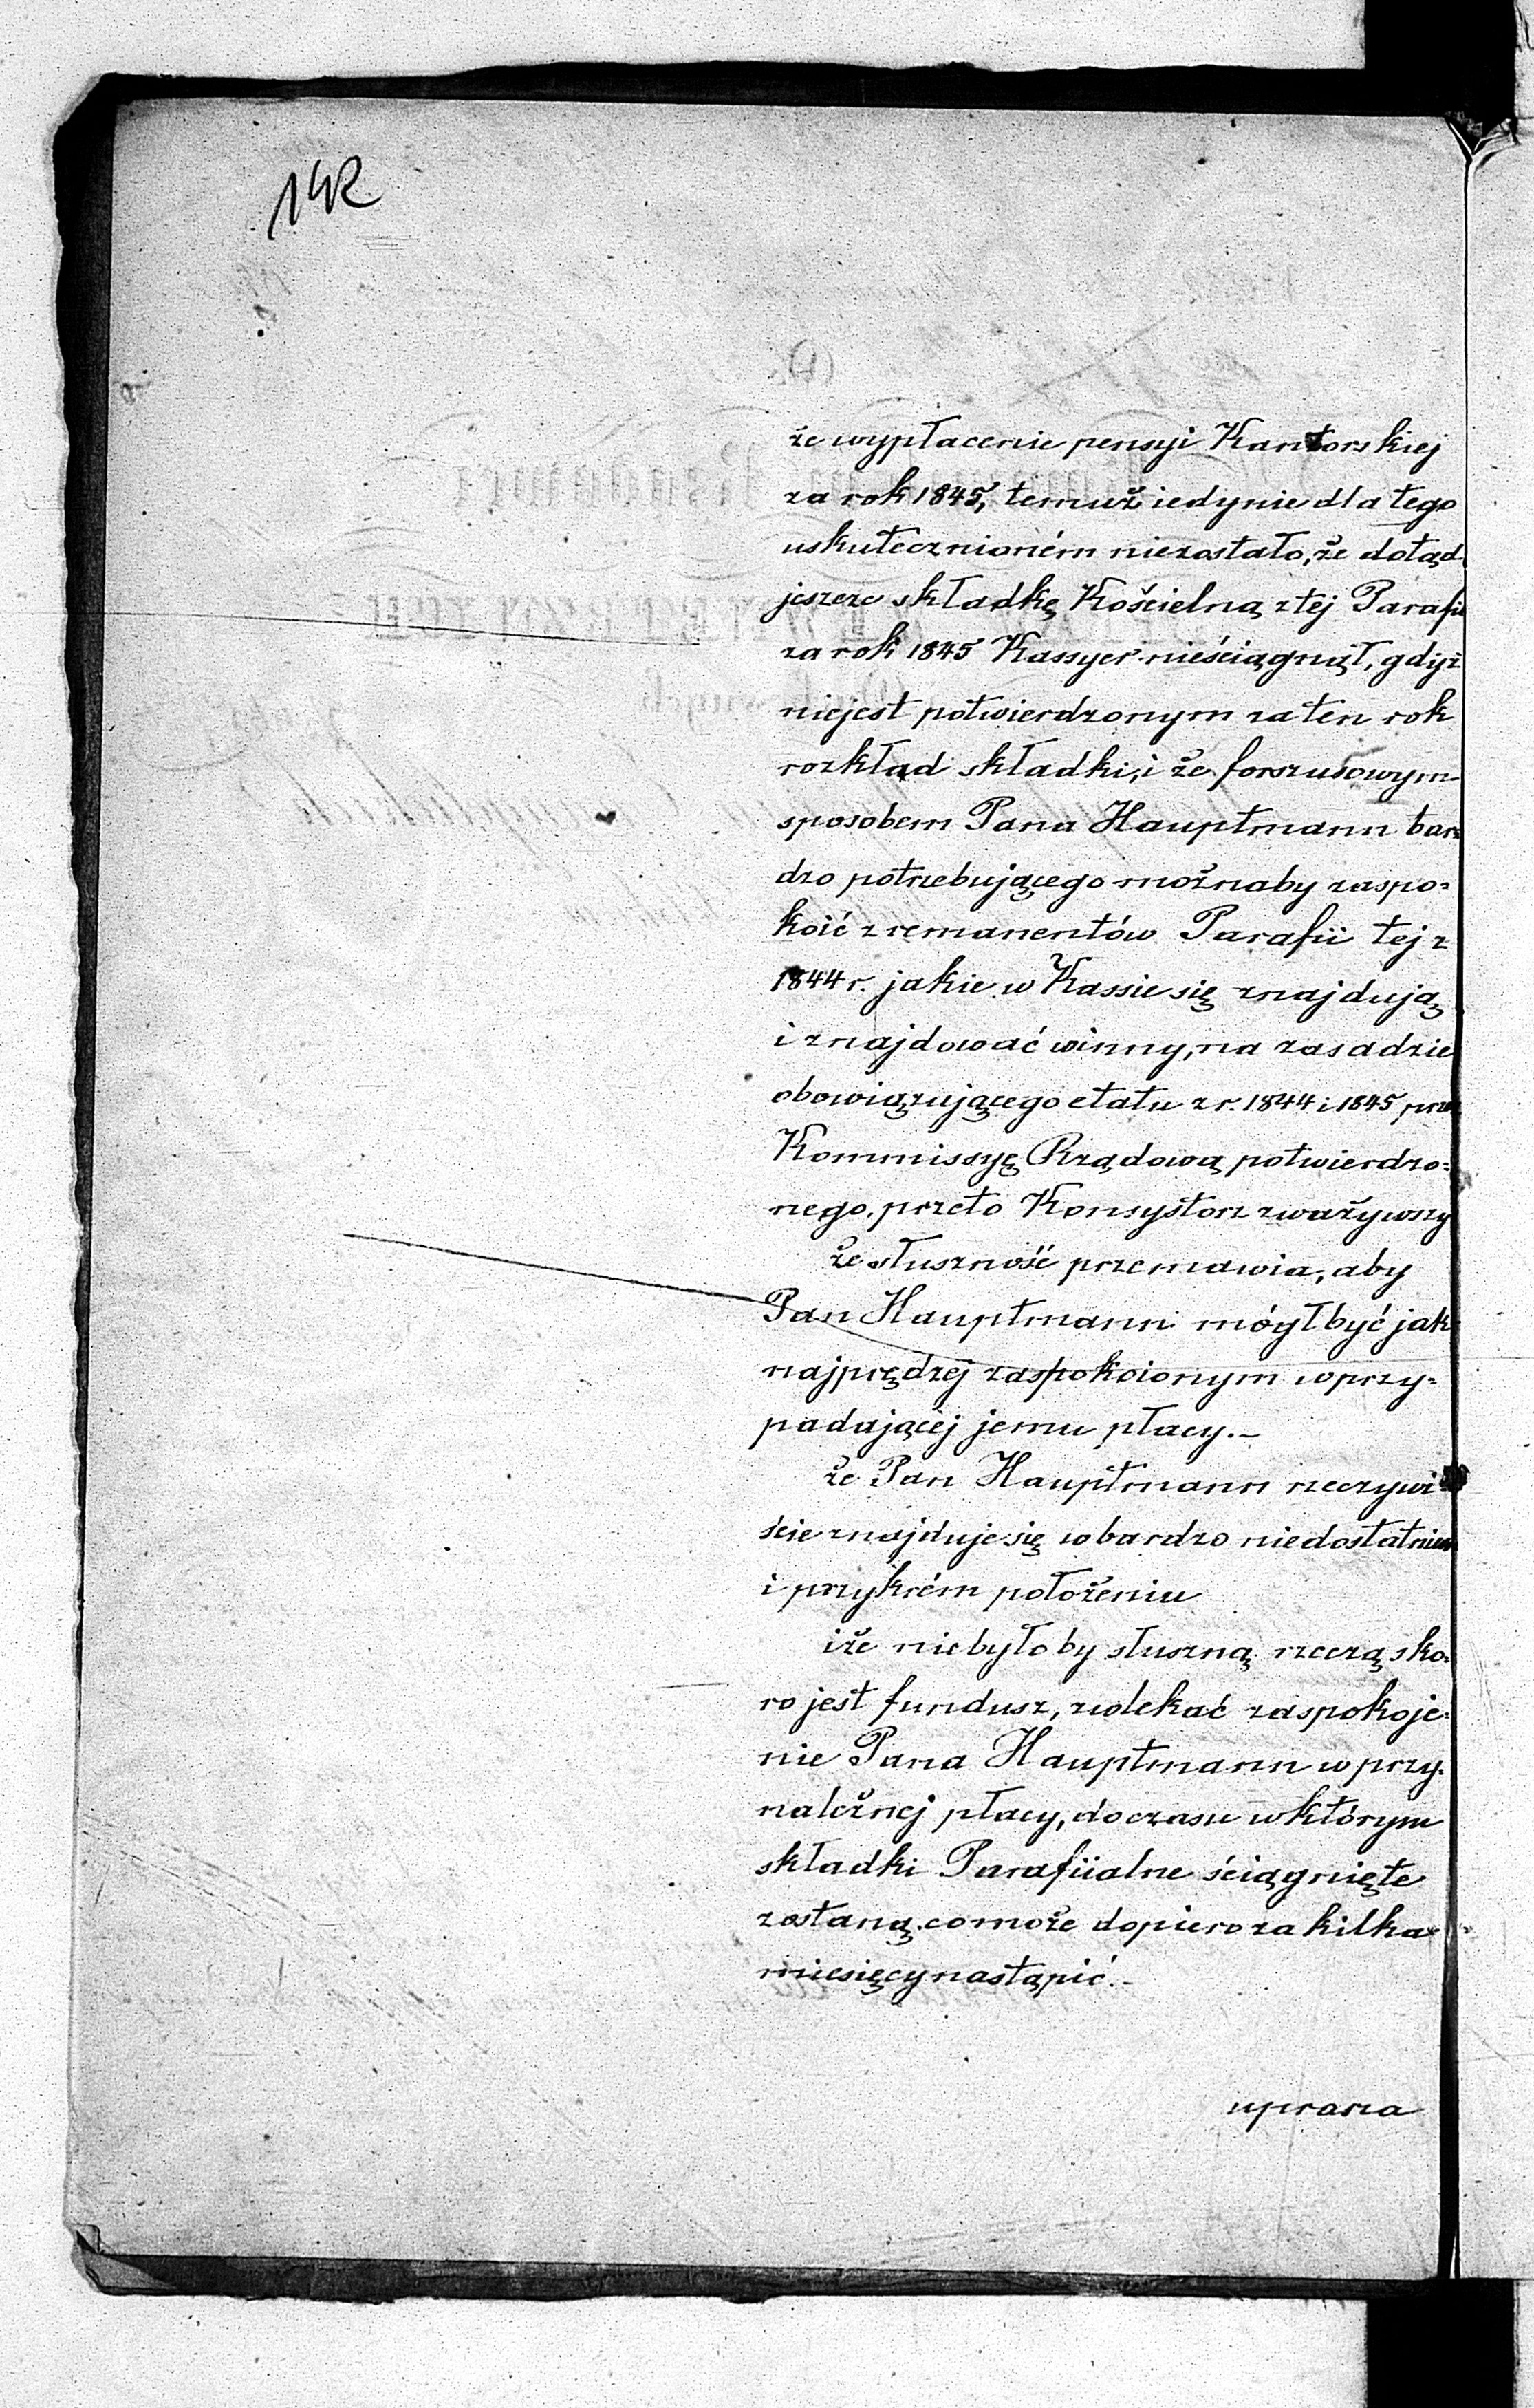 142
że wypłacenie pensyi Kantorskiej
za rok 1845, temuż iedynie dla tego
uskutecznioném niezostało, że dotąd
jeszcze składkę Kościelną z tej Parafii
za rok 1845 Kassyer nieściągnął, gdyż
niejest potwierdzonym za ten rok
rozkład składki, i że forszusowym
sposobem Pana Hauptmann bar=
dzo potrzebującego możnaby zaspo=
koić z remanentów Parafii tej z
1844 r. jakie w Kassie się znajdują
i znajdować winny, na zasadzie
obowiązującego etatu z r. 1844 i 1845 przez
Kommissyę Rządową potwierdzo=
nego. przeto Konsystorz zważywszy
że słuszność przemawia, aby
Pan Hauptmann mógł być jak
najprędzej zaspokoionym w przy=
padającej jemu płacy.–
że Pan Hauptmann rzeczywi
ście znajduje się w bardzo niedostatniem
i przykrém położeniu
i że niebyłoby słuszną rzeczą sko=
ro jest fundusz, zwlekać zaspokoje=
nie Pana Hauptmann w przy=
należnej płacy, do czasu w którym
składki Parafiialne ściągnięte
zostaną. co może dopiero za kilka
miesięcy nastąpić.–
uprasza